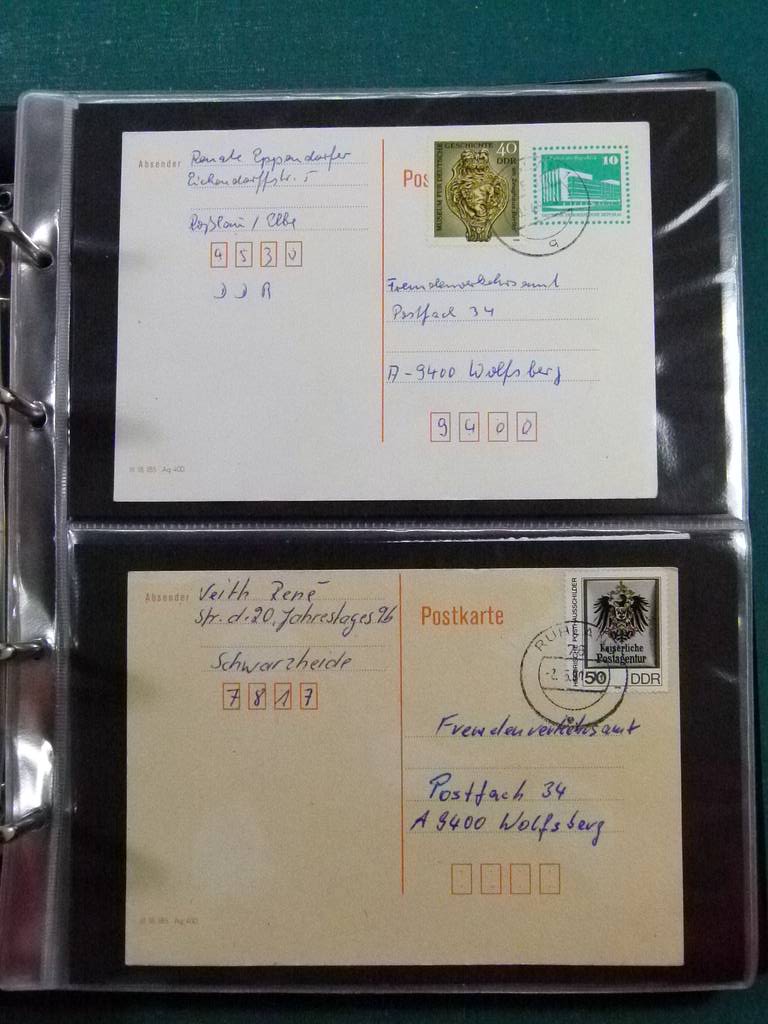 Absender Renate Eppendorfer
Eichendorffstr. 5
Roßlau / Elbe
4530
DDR
MUSEUM FÜR DEUTSCHE GESCHICHTE
40
DDR
Pos
10
a
Fremdenverkehrsamt
Postfach 34
A-9400 Wolfsberg
9400
III 18 185 Ag 400
Absender Veith René
Str. d. 20. Jahrestages 96
Schwarzheide
7817
Postkarte
HISTORISCHE POSTHAUSSCHILDER
Kaiserliche
Postagentur
50 DDR
RUHLA
Fremdenverkehrsamt
Postfach 34
A 9400 Wolfsberg
III 18 185 Ag 400